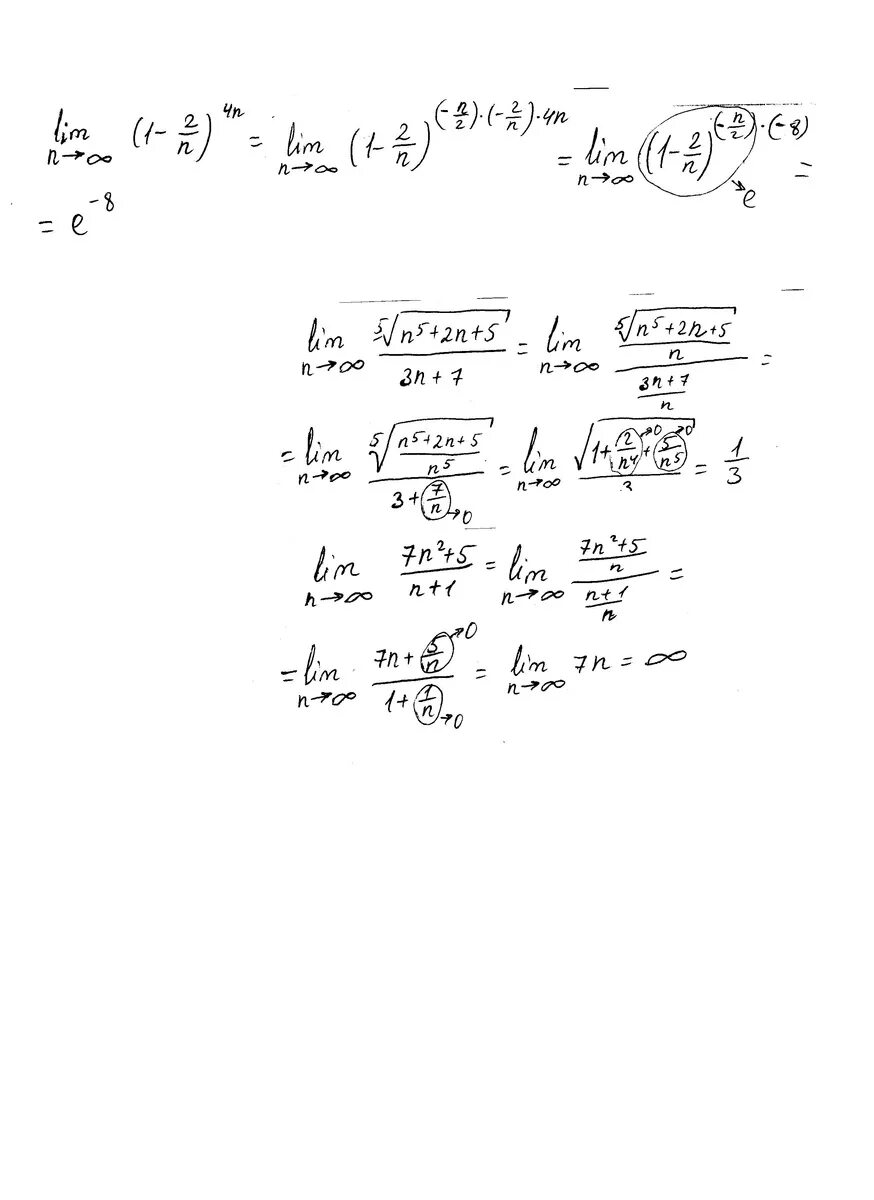 lim n→∞ (1 - 2/n)^4n = lim n→∞ (1 - 2/n)^(-n/2)·(-2/n)·4n = lim n→∞ (1 - 2/n)^(-n/2)·(-8) → e =
= e^-8
lim n→∞ ⁵√(n⁵+2n+5) / (3n+7) = lim n→∞ (⁵√(n⁵+2n+5) / n) / ((3n+7) / n) =
= lim n→∞ ⁵√((n⁵+2n+5) / n⁵) / (3 + 7/n →0) = lim n→∞ √(1 + 2/n⁴ →0 + 5/n⁵ →0) / 3 = 1/3
lim n→∞ (7n²+5) / (n+1) = lim n→∞ ((7n²+5) / n) / ((n+1) / n) =
= lim n→∞ (7n + 5/n →0) / (1 + 1/n →0) = lim n→∞ 7n = ∞